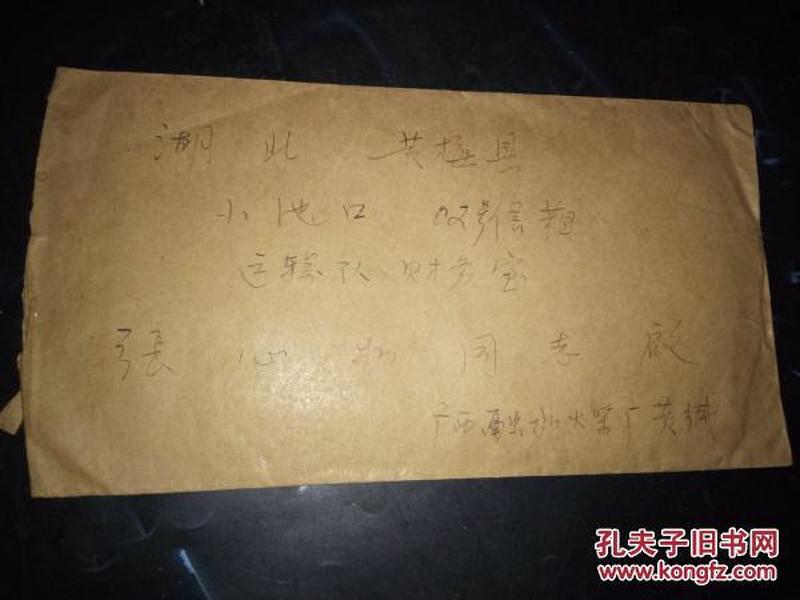 湖北 黄梅县
小池口 02号信箱
运输队财务室
張 心 同志 啟
广西融水火柴厂黄
孔夫子旧书网
www.kongfz.com